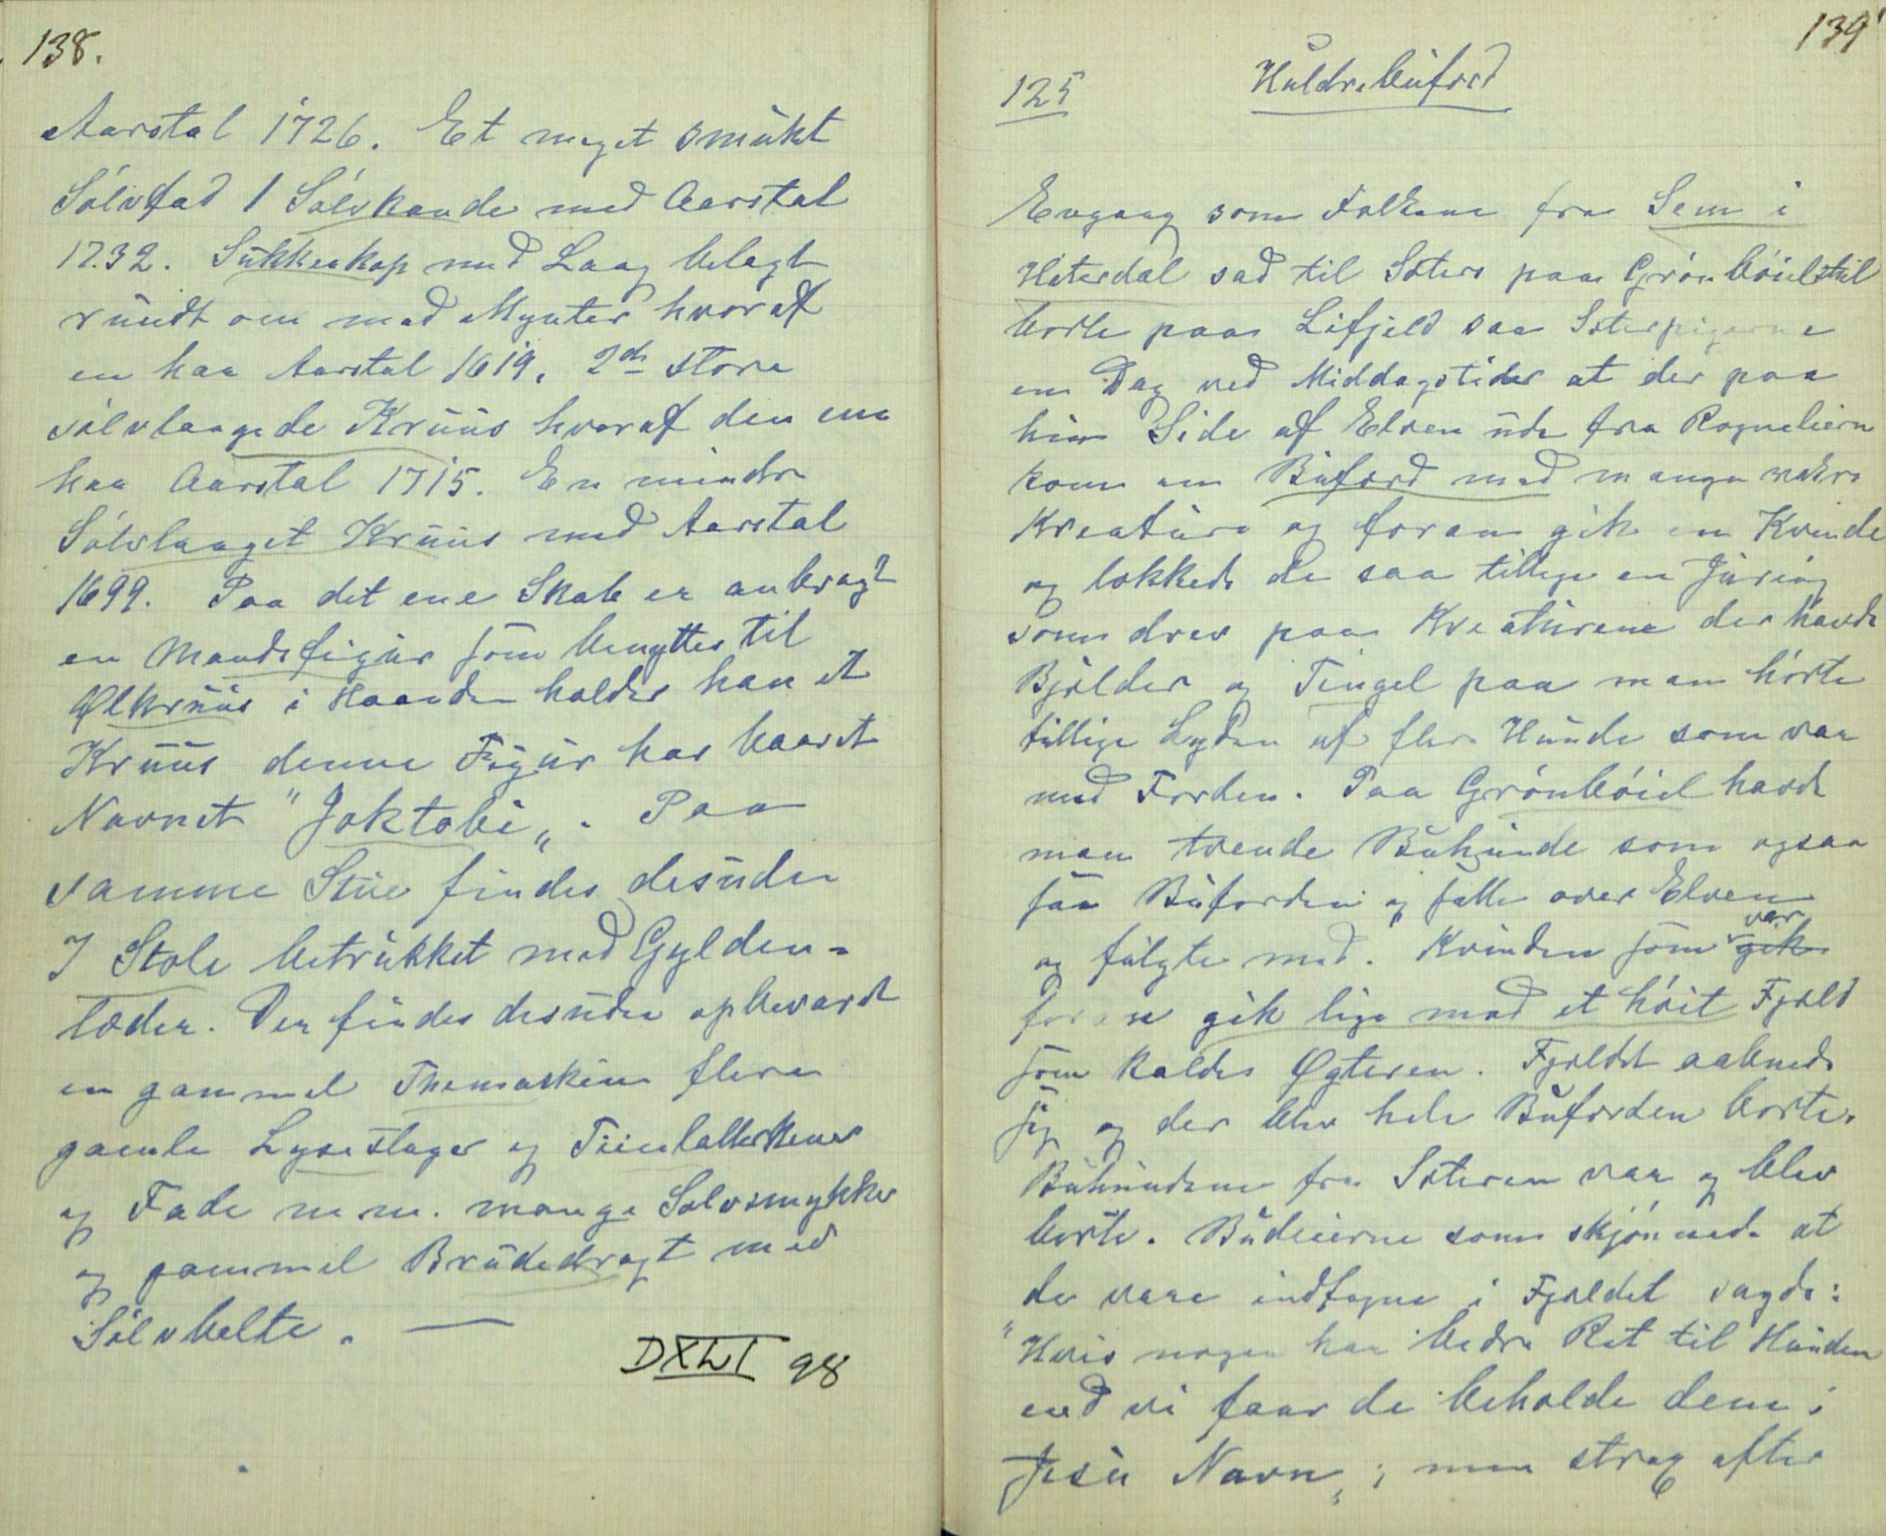 138.
Aarstal 1726. Et meget smukt
Sølvfad 1 Sølvkande med Aarstal
1732. Sukkerkop med Laag belagt
rundt om med Mynter hvoraf
en har Aarstal 1619. 2de store
sølvlaagede Kruus hvoraf den ene
har Aarstal 1715. En mindre
Sølvlaaget Kruus med Aarstal
1699. Paa det ene Skab er anbragt
en Mandsfigur som benyttes til
Ølkruus i Haanden holder han et
Kruus denne Figur har baaret
Navnet "Joktobi„. Paa
samme Stue findes desuden
7 Stole betrukket med Gylden-
læder. Der findes desuden opbevaret
en gammel Themaskine flere
gamle Lysestager og Tintallerkener
og Fade m m. mange Sølvsmykker
og gammel Brudedragt med
Sølvbelte. —
DXLI 98
139
125 Huldrebuferd
Engang som Folkene fra Sem i
Hiterdal sad til Sæters paa Grønbøielstul
borte paa Lifjeld saa Sæterpigerne
en Dag ved Middagstider at der paa
hin Side af Elven ude fra Rogneliern
kom en Buferd med mange vakre
Kreature og foran gik en Kvinde
og lokkede de saa tillige en Juring
som drev paa Kreaturene der havde
Bjelder og Tingel paa man hørte
tillige Lyden af flere Hunde som var
med Ferden. Paa Grønbøiel havde
man trende Buhunde som ogsaa
saa Buferden og satte over Elven
og fulgte med. Kvinden som var gik
foran gik lige mod et høit Fjeld
som kaldes Øgteren. Fjeldet aabnede
sig og der blev hele Buferden borte.
Buhundene fra Sæteren var og blev
borte. Budeierne som skjønnede at
de vare indtagne i Fjeldet sagde:
"Hvis nogen har bedre Ret til Hunden
end vi faar de beholde dem i
Jesu Navn„; men strax efter